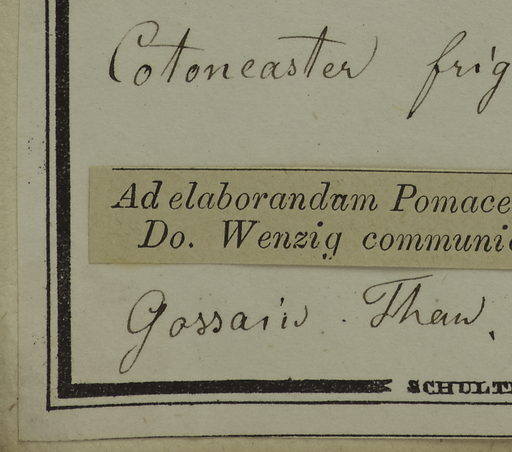 Cotoneaster frig
Ad elaborandam Pomace
Do. Wenzig communi
Gossain. Than.
SCHULT